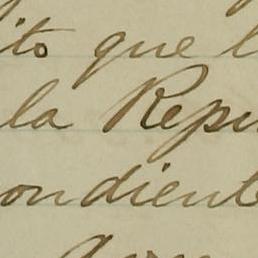 ito que l
la Repu
ondient